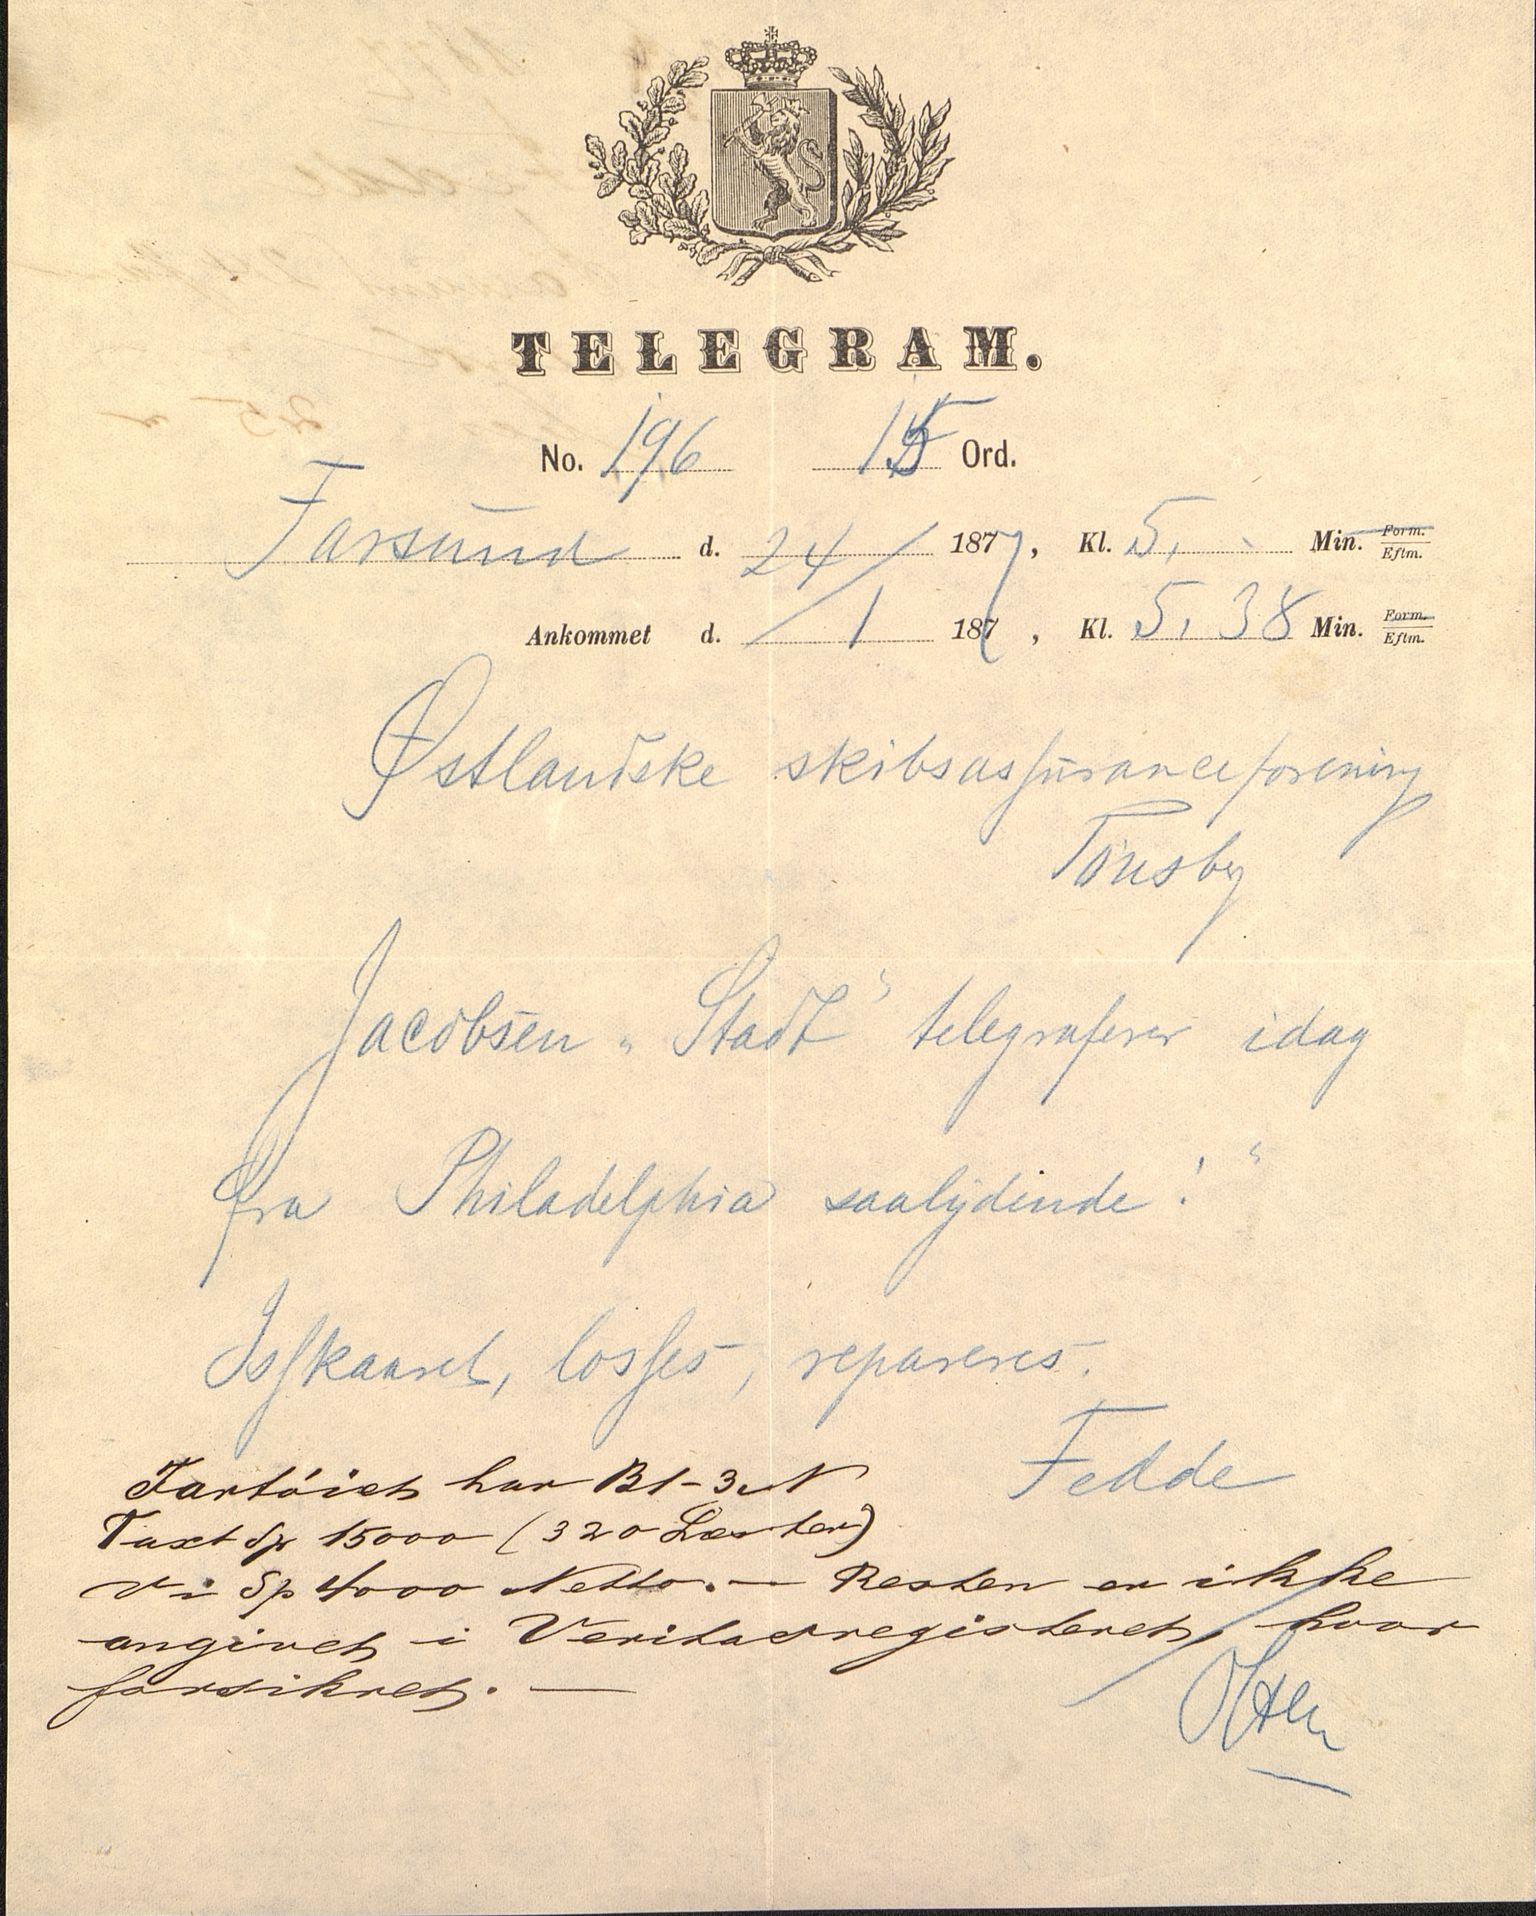 TELEGRAM.
No. 196 15 Ord.
Farsund d. 24/ 1877, Kl. 5. - Min. Form. Eftm.
Ankommet d. /1 187 , Kl. 5. 38 Min. Form. Eftm.
Østlandske skibsassuranceforening
Tönsby
Jacobsen „Stadt“ telegraferer idag
fra Philadelphia saalydende: "
Isskaaret, losses, repareres.
Fedde
Fartöiet har B1-3 N
Taxt Sp 15000 (320 Læster)
Vi Sp 4000 Netto. — Resten er ikke
angivet i Veritasregisteret, hvor
forsikret. —